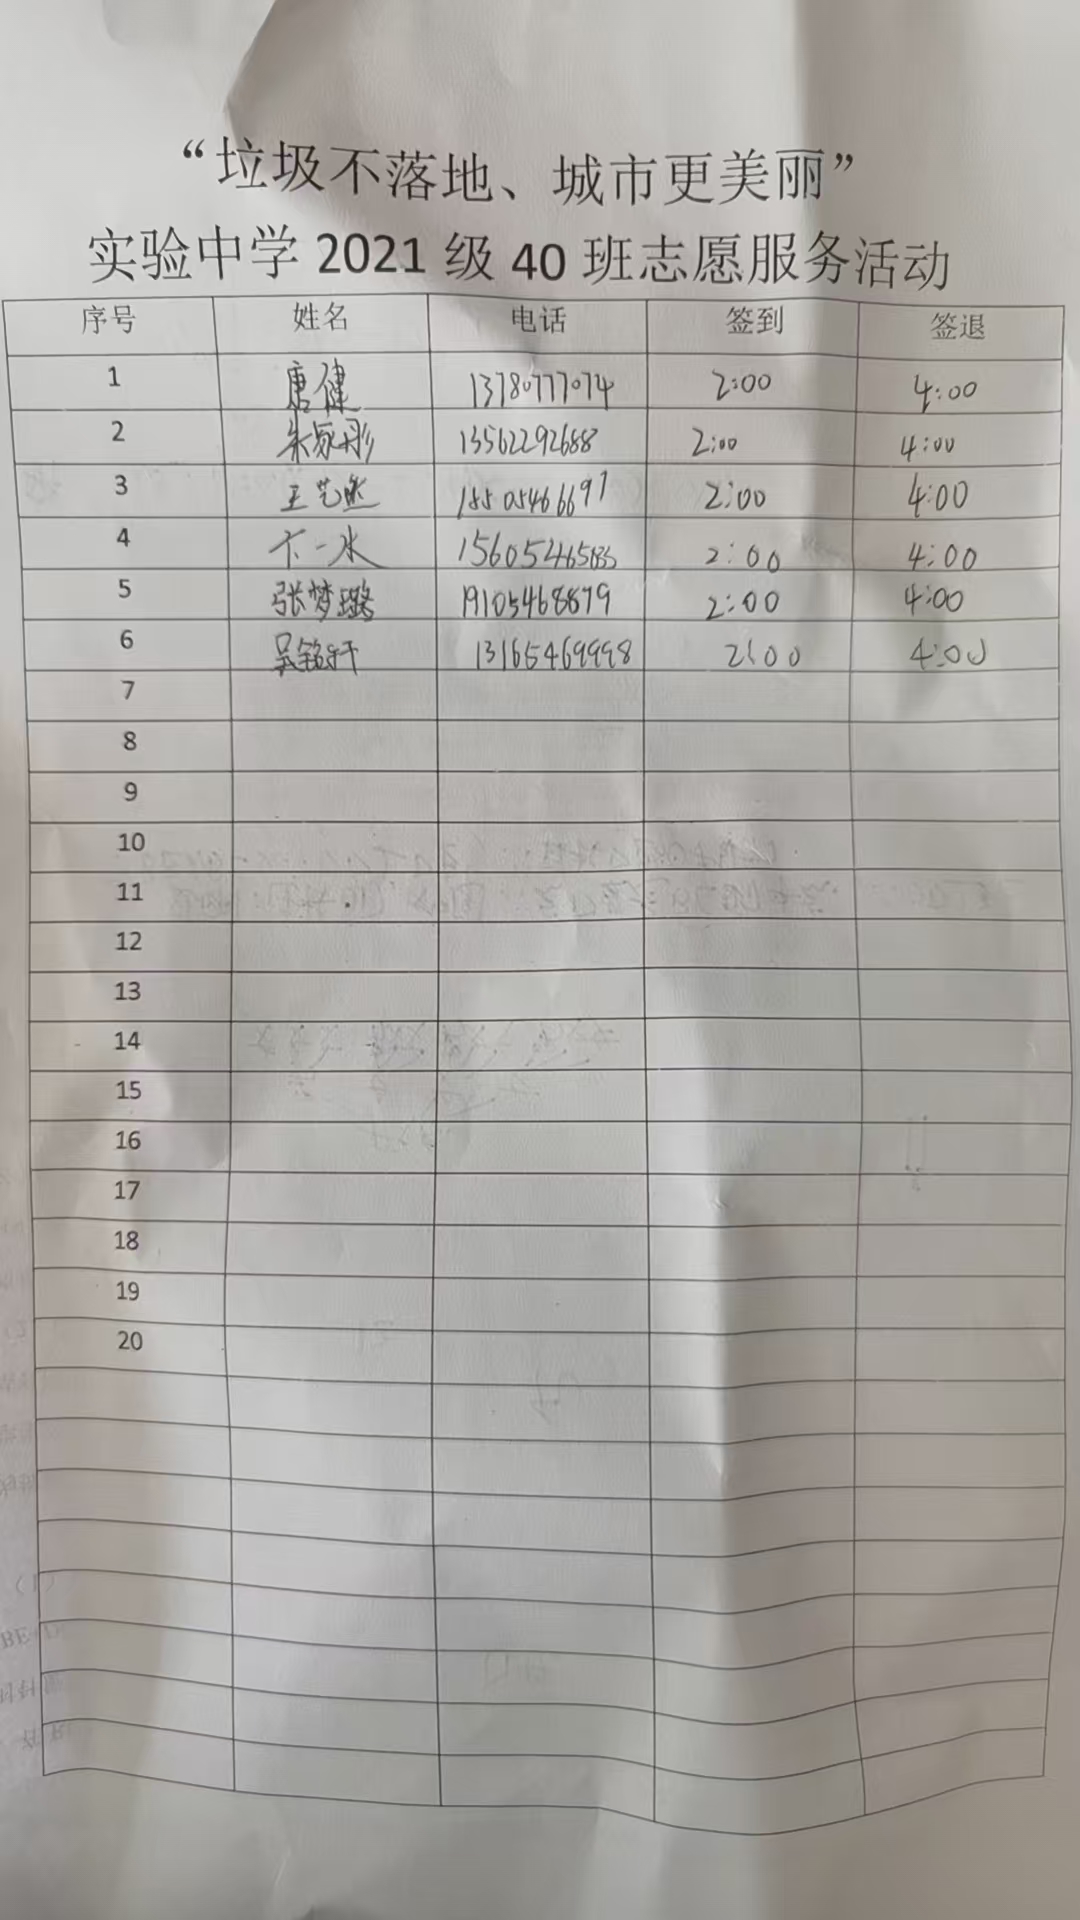 “垃圾不落地、城市更美丽”
实验中学 2021 级 40 班志愿服务活动
序号 姓名 电话 签到 签退
1 唐健 13780777074 2:00 4:00
2 朱家彤 13562292688 2:00 4:00
3 王艺然 15505466697 2:00 4:00
4 卞一水 2:00 4:00
5 张梦璐 19105468879 2:00 4:00
6 吴铭轩 13165469998 2:00 4:00
7
8
9
10
11
12
13
14
15
16
17
18
19
20